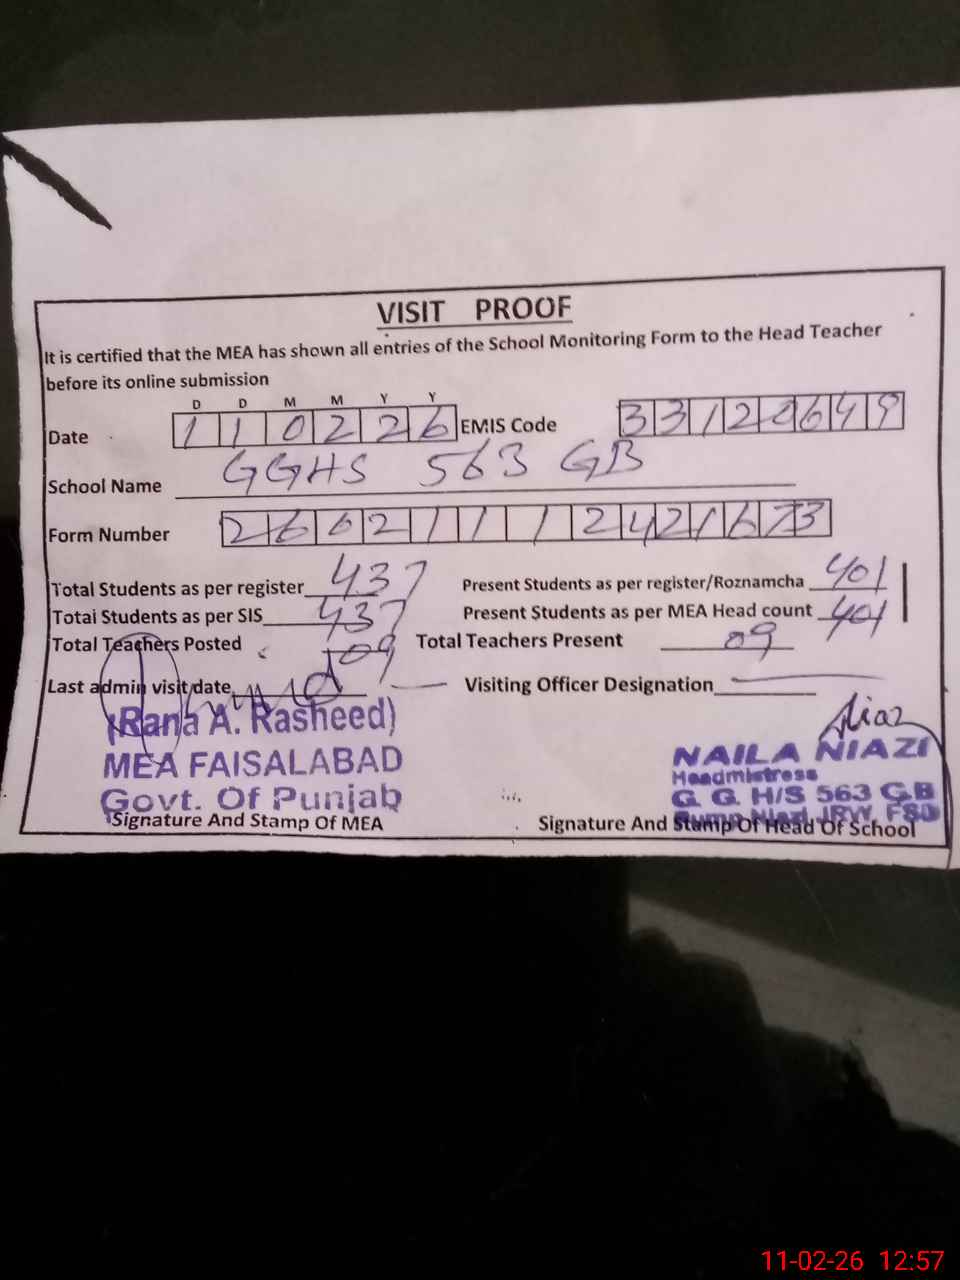 VISIT PROOF
It is certified that the MEA has shown all entries of the School Monitoring Form to the Head Teacher
before its online submission
D D M M Y Y
Date 110226 EMIS Code 33120649
School Name GGHS 563 GB
Form Number 26021112421673
Total Students as per register 437 Present Students as per register/Roznamcha 401
Total Students as per SIS 437 Present Students as per MEA Head count 401
Total Teachers Posted 09 Total Teachers Present 09
Last admin visit date Visiting Officer Designation
(Rana A. Rasheed)
MEA FAISALABAD
Govt. Of Punjab
Signature And Stamp Of MEA
Niaz
NAILA NIAZI
Headmistress
G. G. H/S 563 G.B
Niazi JRW, FSD
Signature And Stamp Of Head Of School
11-02-26 12:57